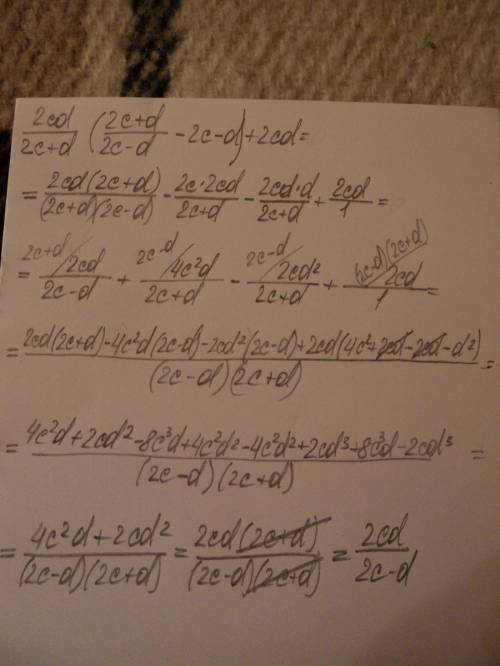 2cd/(2c+d) ((2c+d)/(2c-d) -2c-d)+2cd=
= 2cd(2c+d)/((2c+d)(2c-d)) - 2c·2cd/(2c+d) - 2cd·d/(2c+d) + 2cd/1 =
= (2c+d/ 2cd)/(2c-d) + (2c-d/ 4c²d)/(2c+d) - (2c-d/ 2cd²)/(2c+d) + ((2c-d)(2c+d)/ 2cd)/1 =
= (2cd(2c+d)-4c²d(2c-d)-2cd²(2c-d)+2cd(4c²+2cd-2cd-d²))/((2c-d)(2c+d)) =
= (4c²d+2cd²-8c³d+4c²d²-4c²d²+2cd³+8c³d-2cd³)/((2c-d)(2c+d)) =
= (4c²d+2cd²)/((2c-d)(2c+d)) = 2cd(2c+d)/((2c-d)(2c+d)) = 2cd/(2c-d)